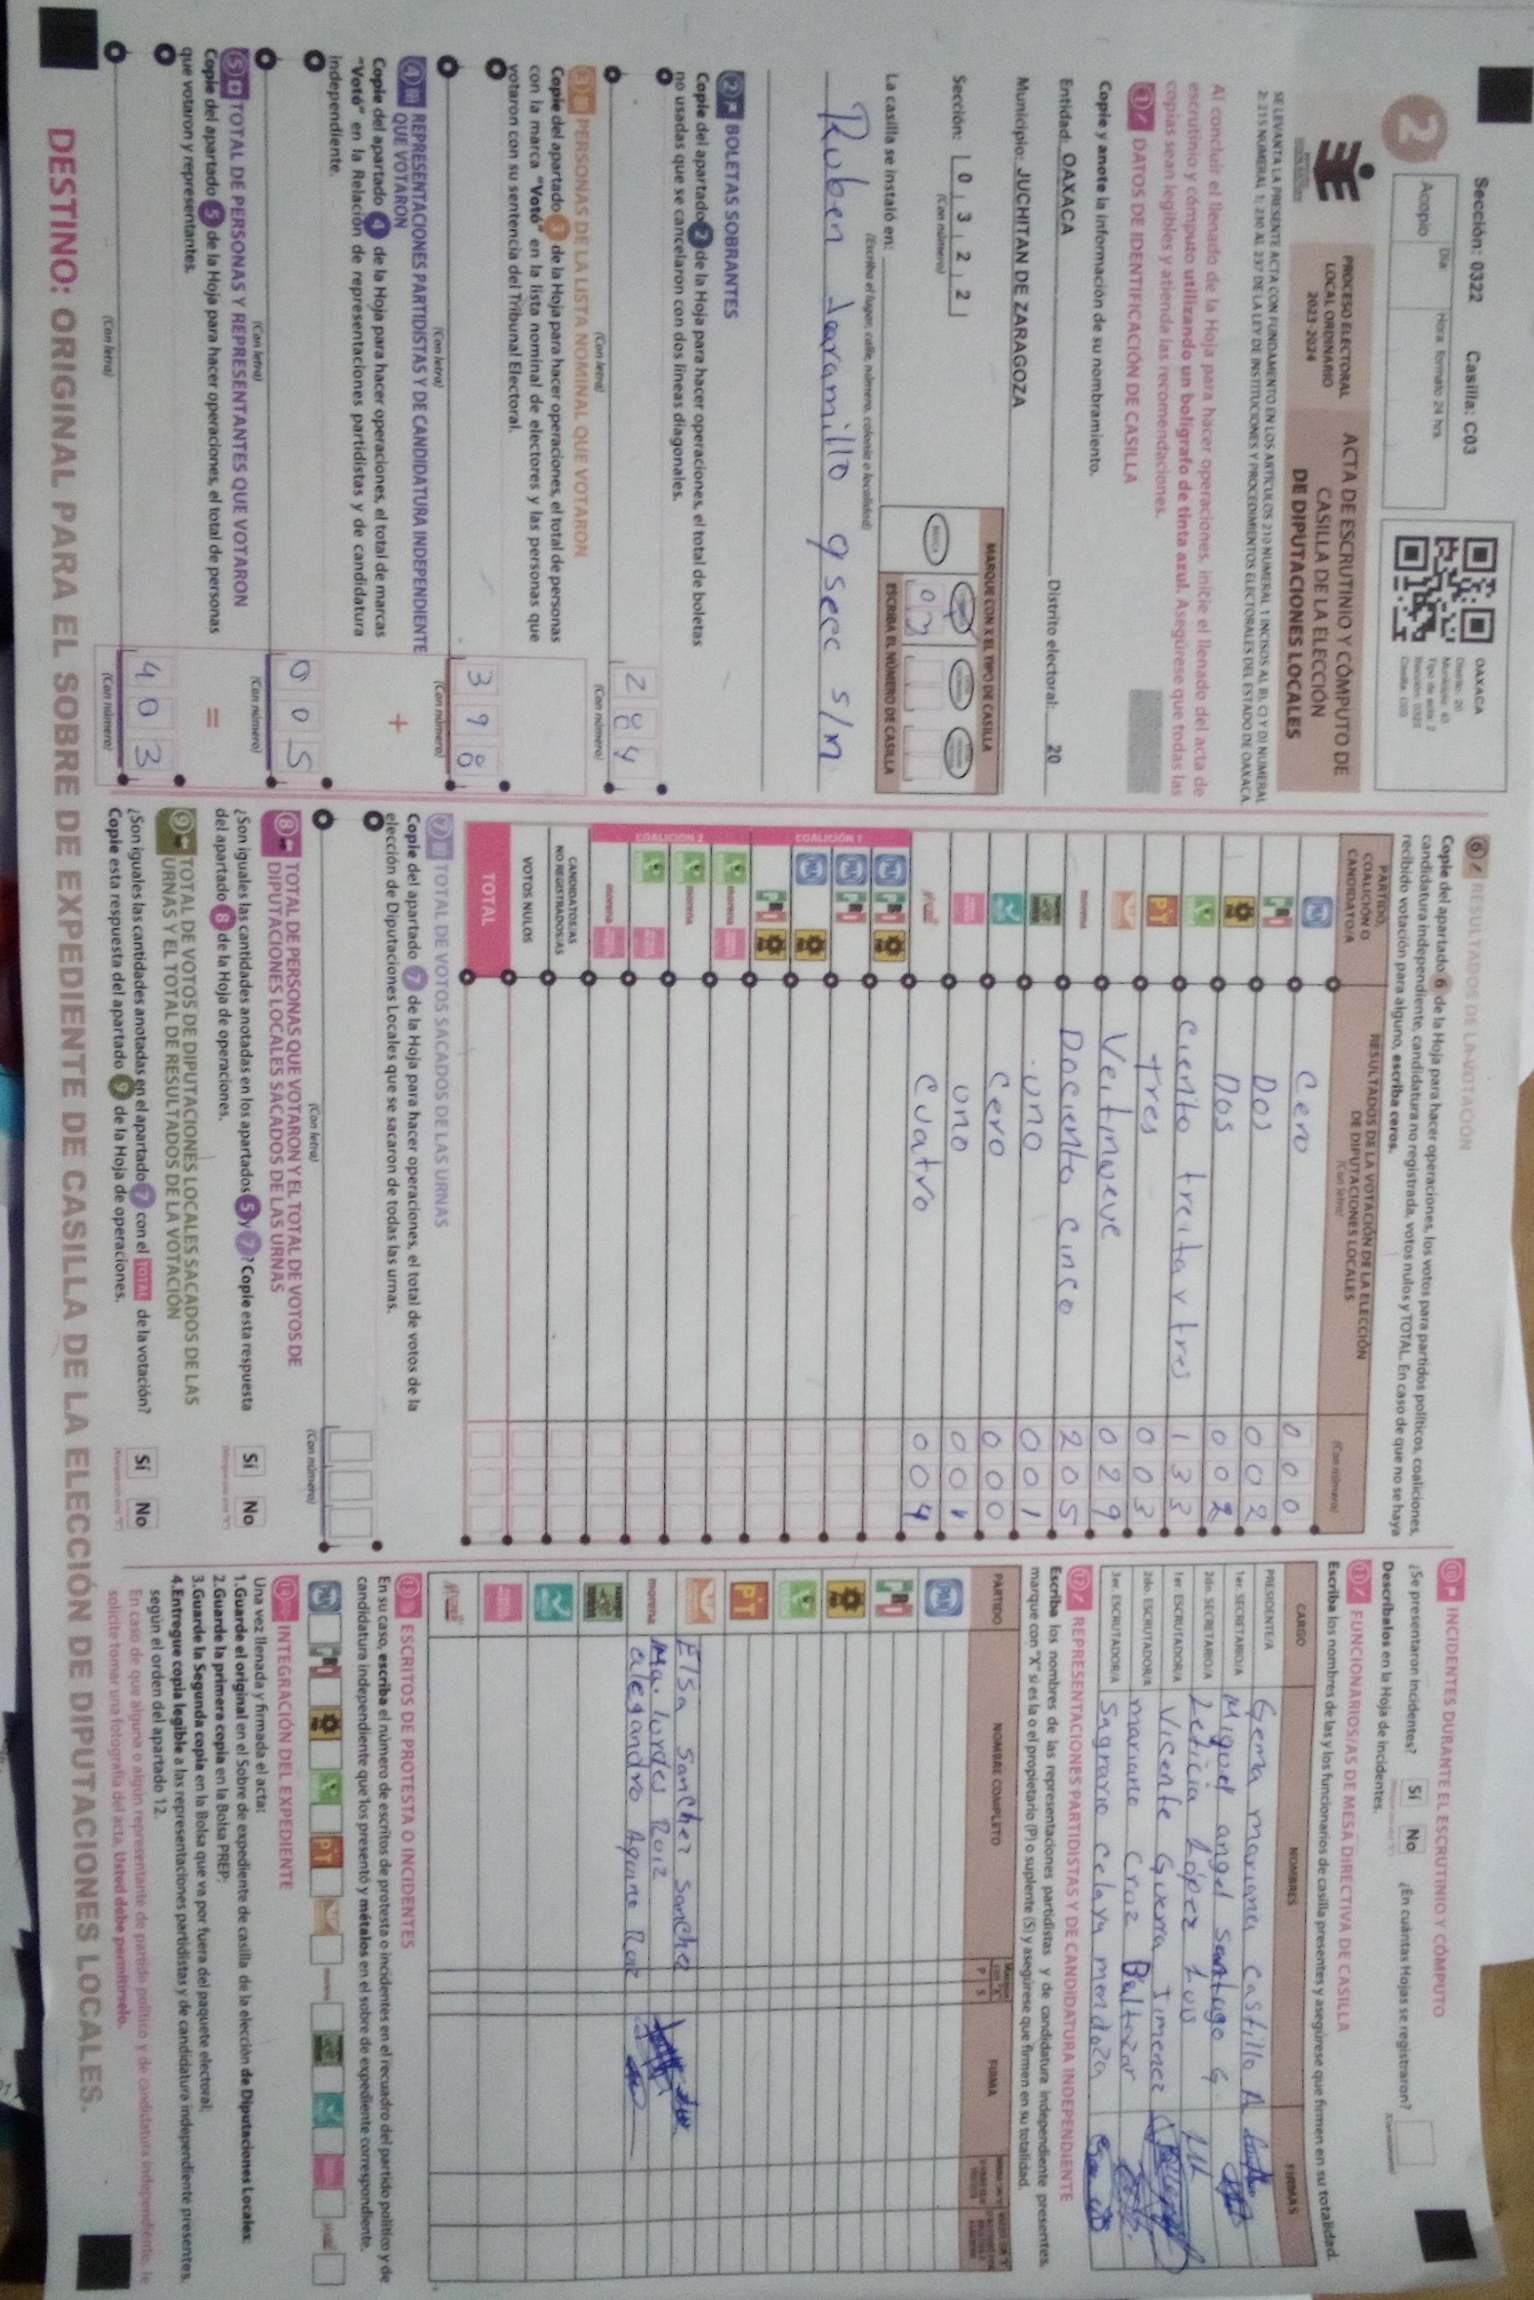 Sección: 0322 Casilla: C03
2
Día: Hora: formato 24 hrs.
Acopio
OAXACA
Distrito: 20
Municipio: 43
Tipo de acta: 2
Sección: 0322
Casilla: C03
PROCESO ELECTORAL
LOCAL ORDINARIO
2023-2024
ACTA DE ESCRUTINIO Y CÓMPUTO DE
CASILLA DE LA ELECCIÓN
DE DIPUTACIONES LOCALES
SE LEVANTA LA PRESENTE ACTA CON FUNDAMENTO EN LOS ARTÍCULOS 210 NUMERAL 1 INCISOS A), B), C) Y D) NUMERAL
2; 215 NUMERAL 1; 230 AL 237 DE LA LEY DE INSTITUCIONES Y PROCEDIMIENTOS ELECTORALES DEL ESTADO DE OAXACA.
Al concluir el llenado de la Hoja para hacer operaciones, inicie el llenado del acta de
escrutinio y cómputo utilizando un bolígrafo de tinta azul. Asegúrese que todas las
copias sean legibles y atienda las recomendaciones.
1 DATOS DE IDENTIFICACIÓN DE CASILLA
Copie y anote la información de su nombramiento.
Entidad: OAXACA Distrito electoral: 20
Municipio: JUCHITAN DE ZARAGOZA
Sección: 0 3 2 2
(Con número)
MARQUE CON X EL TIPO DE CASILLA
BÁSICA
0 3
ESCRIBA EL NÚMERO DE CASILLA
La casilla se instaló en:
(Escriba el lugar, calle, número, colonia o localidad)
Ruben Jaramillo 9 secc s/n
2 BOLETAS SOBRANTES
Copie del apartado 2 de la Hoja para hacer operaciones, el total de boletas
no usadas que se cancelaron con dos líneas diagonales.
284
(Con letra) (Con número)
3 PERSONAS DE LA LISTA NOMINAL QUE VOTARON
Copie del apartado 3 de la Hoja para hacer operaciones, el total de personas
con la marca "Votó" en la lista nominal de electores y las personas que
votaron con su sentencia del Tribunal Electoral.
3 9 8
(Con letra) (Con número)
4 REPRESENTACIONES PARTIDISTAS Y DE CANDIDATURA INDEPENDIENTE
QUE VOTARON
Copie del apartado 4 de la Hoja para hacer operaciones, el total de marcas
"Votó" en la Relación de representaciones partidistas y de candidatura
independiente.
+
0 0 5
(Con letra) (Con número)
5 TOTAL DE PERSONAS Y REPRESENTANTES QUE VOTARON
Copie del apartado 5 de la Hoja para hacer operaciones, el total de personas
que votaron y representantes.
=
4 0 3
(Con letra) (Con número)
6 RESULTADOS DE LA VOTACIÓN
Copie del apartado 6 de la Hoja para hacer operaciones, los votos para partidos políticos, coaliciones,
candidatura independiente, candidatura no registrada, votos nulos y TOTAL. En caso de que no se haya
recibido votación para alguno, escriba ceros.
PARTIDO,
COALICIÓN O
CANDIDATO/A
RESULTADOS DE LA VOTACIÓN DE LA ELECCIÓN
DE DIPUTACIONES LOCALES
(Con letra) (Con número)
PAN Cero 0 0 0
PRI Dos 0 0 2
PRD Dos 0 0 2
Ciento treita y tres 1 3 3
PT tres 0 0 3
Veitinueve 0 2 9
morena Dociento cinco 2 0 5
uno 0 0 1
Cero 0 0 0
uno 0 0 1
Cuatro 0 0 4
COALICIÓN 1
PAN PRI PRD
PAN PRI
PAN PRD
PRI PRD
COALICIÓN 2
morena
morena
morena
CANDIDATOS/AS
NO REGISTRADOS/AS
VOTOS NULOS
TOTAL
7 TOTAL DE VOTOS SACADOS DE LAS URNAS
Copie del apartado 7 de la Hoja para hacer operaciones, el total de votos de la
elección de Diputaciones Locales que se sacaron de todas las urnas.
(Con letra) (Con número)
8 TOTAL DE PERSONAS QUE VOTARON Y EL TOTAL DE VOTOS DE
DIPUTACIONES LOCALES SACADOS DE LAS URNAS
¿Son iguales las cantidades anotadas en los apartados 5 y 7? Copie esta respuesta
del apartado 8 de la Hoja de operaciones.
Sí No
9 TOTAL DE VOTOS DE DIPUTACIONES LOCALES SACADOS DE LAS
URNAS Y EL TOTAL DE RESULTADOS DE LA VOTACIÓN
¿Son iguales las cantidades anotadas en el apartado 7 con el TOTAL de la votación?
Copie esta respuesta del apartado 9 de la Hoja de operaciones.
Sí No
10 INCIDENTES DURANTE EL ESCRUTINIO Y CÓMPUTO
¿Se presentaron incidentes? Sí No ¿En cuántas Hojas se registraron?
Descríbalos en la Hoja de incidentes.
11 FUNCIONARIOS/AS DE MESA DIRECTIVA DE CASILLA
Escriba los nombres de las y los funcionarios de casilla presentes y asegúrese que firmen en su totalidad.
CARGO NOMBRES FIRMAS
PRESIDENTE/A Gema mariana castillo A
1er. SECRETARIO/A Miguel angel santiago G
2do. SECRETARIO/A Leticia López Luis
1er. ESCRUTADOR/A Vicente Guerra Jimenez
2do. ESCRUTADOR/A mariano Cruz Baltazar
3er. ESCRUTADOR/A Sagrario Celaya mendoza
12 REPRESENTACIONES PARTIDISTAS Y DE CANDIDATURA INDEPENDIENTE
Escriba los nombres de las representaciones partidistas y de candidatura independiente presentes,
marque con "X" si es la o el propietario (P) o suplente (S) y asegúrese que firmen en su totalidad.
PARTIDO NOMBRE COMPLETO P S FIRMA
PAN
PRI
PRD
PT
Elsa Sanchez Sanchez
morena Ma. lordes Ruiz
alegandro Aquino Ruiz
13 ESCRITOS DE PROTESTA O INCIDENTES
En su caso, escriba el número de escritos de protesta o incidentes en el recuadro del partido político y de
candidatura independiente que los presentó y métalos en el sobre de expediente correspondiente.
PAN PRI PRD PT
14 INTEGRACIÓN DEL EXPEDIENTE
Una vez llenada y firmada el acta:
1.Guarde el original en el Sobre de expediente de casilla de la elección de Diputaciones Locales;
2.Guarde la primera copia en la Bolsa PREP;
3.Guarde la Segunda copia en la Bolsa que va por fuera del paquete electoral;
4.Entregue copia legible a las representaciones partidistas y de candidatura independiente presentes,
según el orden del apartado 12.
En caso de que alguna o algún representante de partido político y de candidatura independiente, le
solicite tomar una fotografía del acta. Usted debe permitírselo.
DESTINO: ORIGINAL PARA EL SOBRE DE EXPEDIENTE DE CASILLA DE LA ELECCIÓN DE DIPUTACIONES LOCALES.